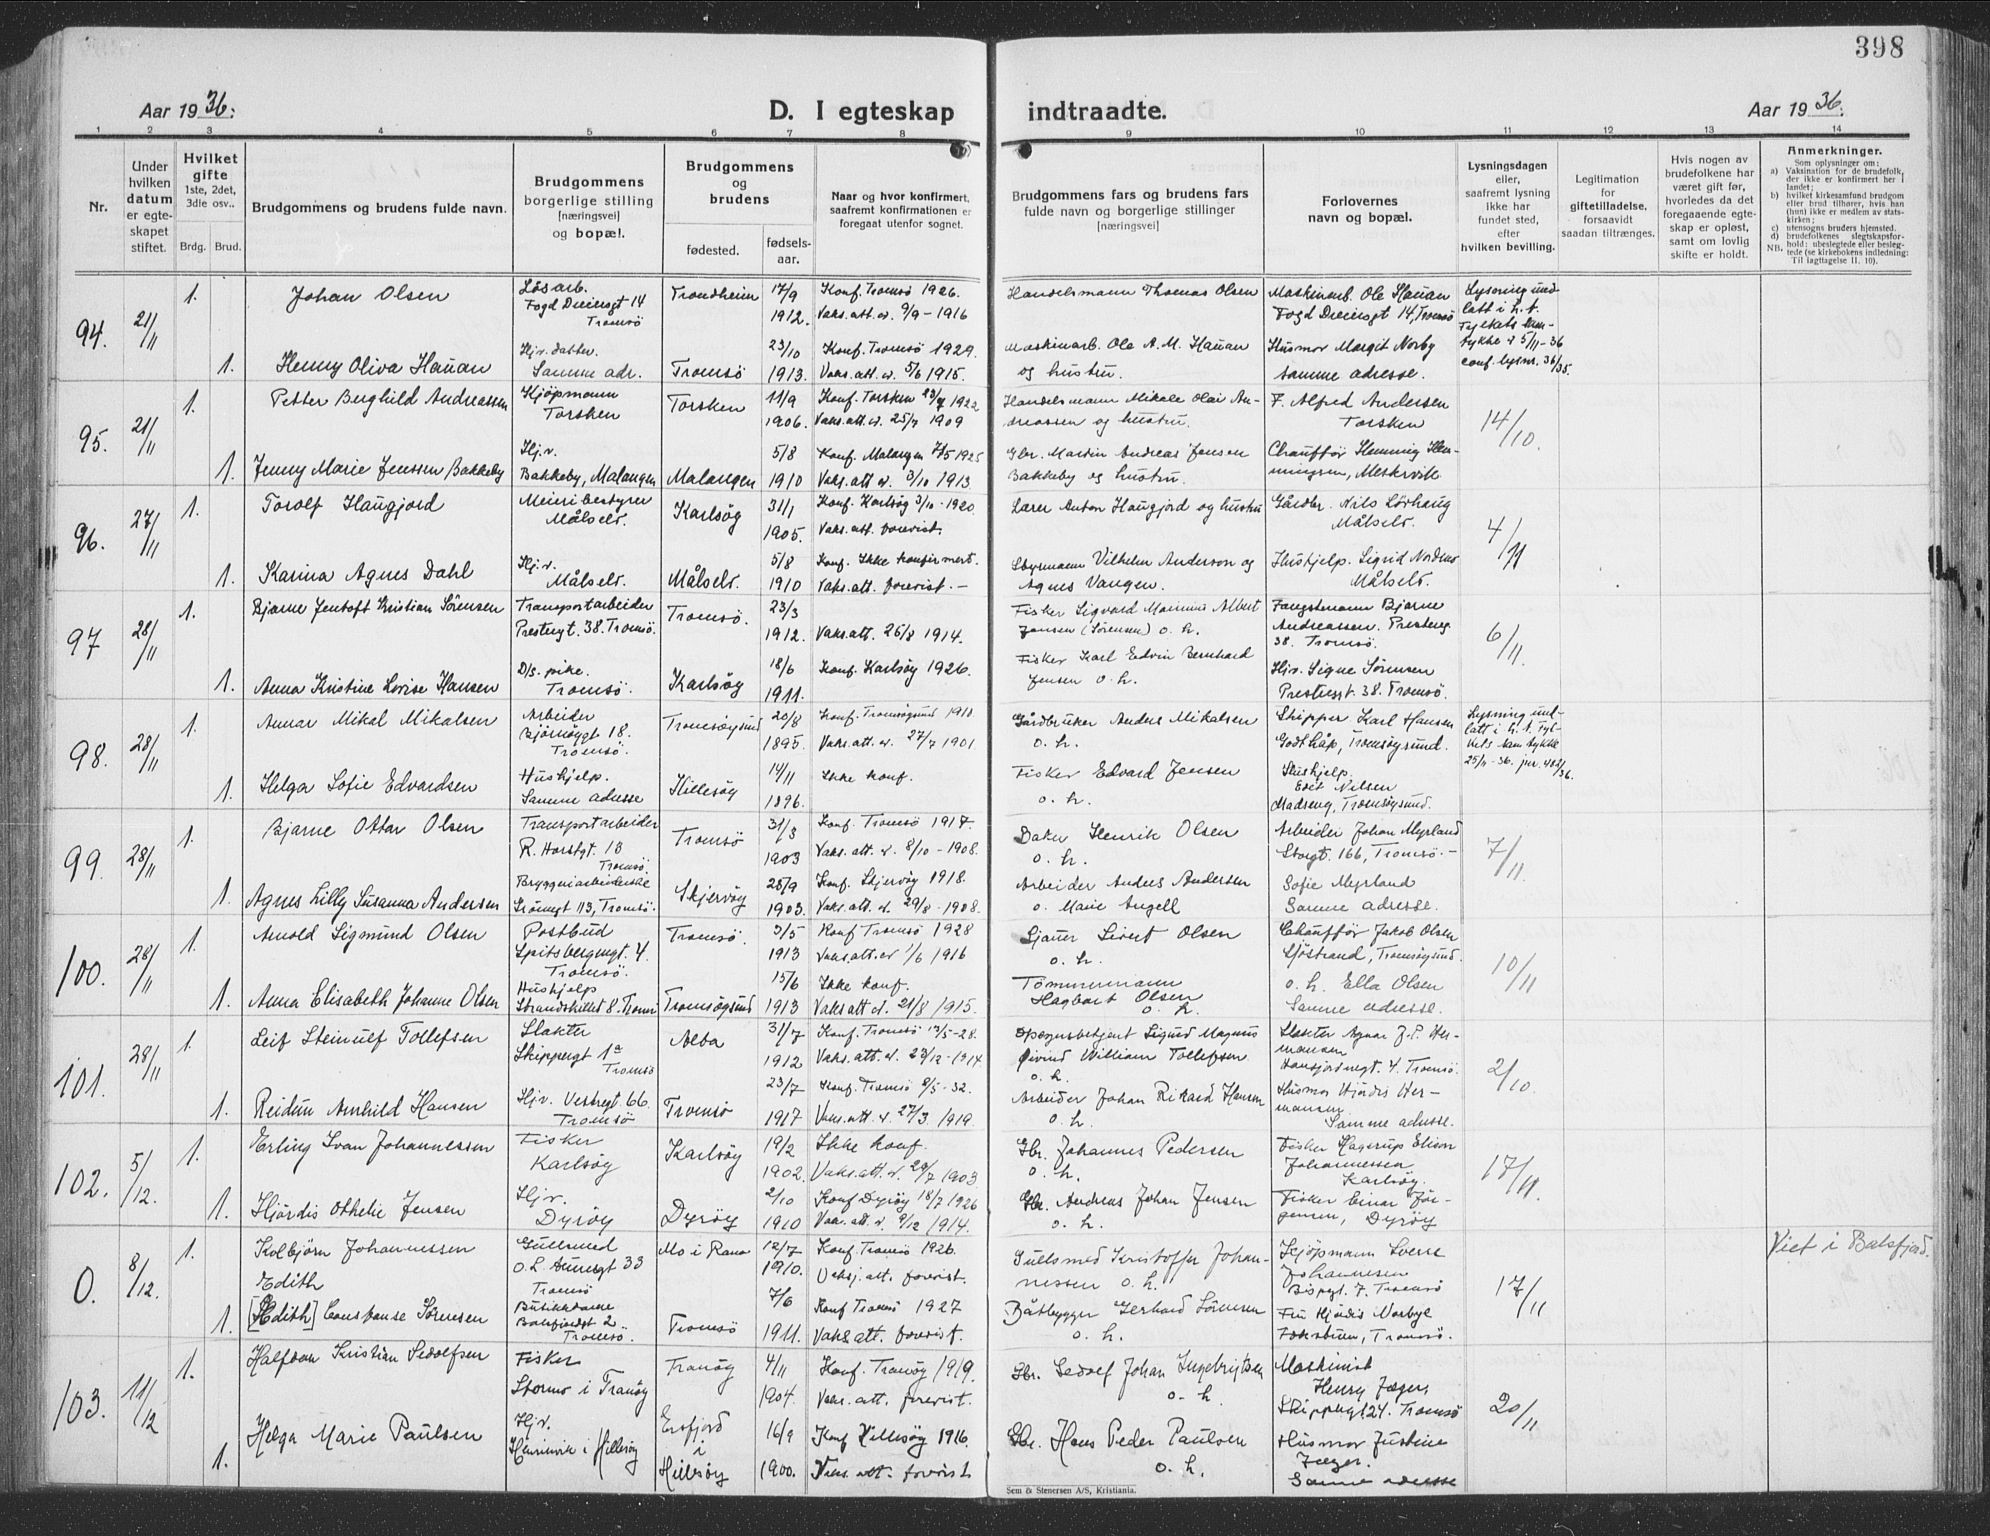 398
Aar 1936.
D. I egteskap
indtraadte.
Aar 1936.
1 2 3 4 5 6 7 8 9 10 11 12 13 14
Nr.
Under
hvilken
datum
er egte-
skapet
stiftet.
Hvilket
gifte
1ste, 2det,
3dle osv..
Brdg. Brud.
Brudgommens og brudens fulde navn.
Brudgommens
borgerlige stilling
[næringsvei]
og bopæl.
Brudgommens
og
brudens
fødested.
fødsels-
aar.
Naar og hvor konfirmert,
saafremt konfirmationen er
foregaat utenfor sognet.
Brudgommens fars og brudens fars
fulde navn og borgerlige stillinger
[næringsvei]
Forlovernes
navn og bopæl.
Lysningsdagen
eller,
saafremt lysning
ikke har
fundet sted,
efter
hvilken bevilling.
Legitimation
for
giftetilladelse,
forsaavidt
saadan tiltrænges.
Hvis nogen av
brudefolkene har
været gift før,
hvorledes da det
foregaaende egte-
skap er opløst,
samt om lovlig
skifte er holdt.
Anmerkninger.
Som oplysninger om:
a) Vaksination for de brudefolk,
der ikke er konfirmert her i
landet;
b) hvilket kirkesamfund brudgom
eller brud tilhører, hvis han
(hun) ikke er medlem av stats-
kirken;
c) utensogns bruders hjemsted.
d) brudefolkenes slegtskapsfor-
hold: ubeslegtede eller besleg-
NB. tede (se kirkebokens indledning:
Til iagttagelse II, 10).
94. 21/11 1. Johan Olsen
Løsarb.
Fogd Dreiersgt 14
Tromsö
Trondheim
17/9
1912.
Konf. Tromsö 1926.
Vaks. att. d. 9/9 - 1916
Handelsmann Thomas Olsen
Maskinarb. Ole Hauan
Fogd Dreiersgt 14, Tromsö
1. Henny Oliva Hauan
Hjv. datter.
Samme adr.
Tromsö
23/10
1913.
Konf. Tromsö 1929.
Vaks. att. d. 5/6 1915.
Maskinarb. Ole A. M. Hauan
og hustru.
Husmor Margit Norby
samme adresse.
95. 21/11 1. Petter Berghild Andreassen
Kjöpmann
Torsken
Torsken
11/9
1906.
Konf. Torsken 23/7 1922
Vaks. att. d. 25/7 1909
Handelsmann Mikale Olai An-
dreassen og hustru.
F. Alfred Andersen
Torsken
14/10
1. Jenny Marie Jenssen Bakkeby
Hj.v.
Bakkeby, Malangen
Malangen
5/8
1910
Konf. Malangen 7/5 1925
Vaks. att d. 3/10 1913.
Gbr. Martin Andreas Jensen
Bakkeby og hustru.
Chauffør Henning Hen-
ningsen,
96. 27/11 1. Torolf Haugjord
Meieribestyrer
Målselv.
Karlsöy
31/1
1905.
Konf. Karlsöy 3/10 - 1920.
Vaks. att. forevist.
Lærer Anton Haugjord og hustru
Gårdbr. Nils Lörhaug
Målselv.
4/11
1. Karina Agnes Dahl
Hj.v.
Målselv.
Målselv.
5/8
1910
Konf. Ikke konfirmert.
Vaks. att. forevist. -
Styrmann Vilhelm Anderson og
Agnes Vangen.
Hushjelp. Sigrid
Målselv.
97 28/11 1. Bjarne Jentoft Kristian Sörensen
Transportarbeider
Prestengt. 38. Tromsö.
Tromsö.
23/3
1912.
Vaks. att. 26/8 1914.
Fisker Sigvard Marinius Albert
Jensen (Sörensen) o. h.
Fangstmann Bjarne
Andreassen. Presteng.
38. Tromsö.
6/11.
1. Anna Kristine Lovise Hansen
D/s. pike.
Tromsö.
Karlsöy
18/6
1911.
Konf. Karlsöy 1926.
Fisker Karl Edvin Bernhard
Jensen o. h.
Hjv. Signe Sörensen
Prestengt. 38. Tromsö.
98. 28/11 1. Annar Mikal Mikalsen
Arbeider
Bjørnöygt 18.
Tromsö.
Tromsöysund
20/8
1895.
Konf. Tromsöysund 1910.
Vaks. att. d. 27/7 1901
Gårdbruker Anders Mikalsen
o. h.
Skipper Karl Hansen
Godthåp, Tromsöysund.
1. Helga Sofie Edvardsen
Hushjelp.
Samme adresse
Hillesöy
14/11
1896.
Ikke konf.
Fisker Edvard Jensen
o. h.
Hushjelp.
Edit Nilsen
Madseng, Tromsöysund.
99. 28/11 1. Bjarne Ottar Olsen
Transportarbeider
R. Horstgt. 18
Tromsö.
Tromsö
31/3
1903
Konf. Tromsö 1917.
Vaks. att. d. 8/10 - 1908.
Baker Henrik Olsen
o. h.
Arbeider Johan Myrland
Storgt. 166, Tromsö. -
7/11
1. Agnes Lilly Susanna Andersen
Bryggeriarbeiderske
Grönnegt 113, Tromsö.
Skjervöy
28/9
1903.
Konf. Skjervöy 1918.
Vaks. att. d. 29/8 - 1908.
Arbeider Anders Andersen
o. Marie Angell
Sofie Myrland
Samme adresse.
100. 28/11 1. Arnold Sigmund Olsen
Postbud
Spitsbergengt. 4.
Tromsö.
Tromsö.
3/5
1913
Konf Tromsö 1928
Vaks. att. d 1/6 1916
Sjauer Sivert Olsen
o. h.
Chauffør Jakob Olsen
Sjöstrand, Tromsöysund.
10/11
1. Anna Elisabeth Johanne Olsen
Hushjelp
Strandskillet 8. Tromsö
Tromsöysund
15/6
1913
Ikke konf.
Vaks att d. 21/8 1915.
Tömmermann
Hagbart Olsen
o. h.
o. h. Ella Olsen
Samme adresse.
101. 28/11 1. Leif Steinulf Tollefsen
Slakter
Skippergt 1a
Tromsö
Alta
31/7
1912
Konf. Tromsö 13/5 - 28.
Vaks. att. d. 23/12 - 1914
Opsynsbetjent Sigurd Magnus
Öivind William Tollefsen
o. h.
Slakter Agnar J. P. Her-
mansen
Hansjordnesgt. 4. Tromsö.
2/10
1. Reidun Arnhild Hansen
Hj.v. Vestregt. 66.
Tromsö
Tromsö
23/7
1917
Konf. Tromsö 8/5 - 32.
Vaks. att. d. 27/3 1919.
Arbeider Johan Rikard Hansen
o. h.
Husmor Hjördis Her-
mansen
Samme adresse.
102. 5/12. 1. Erling Ivan Johannessen
Fisker
Karlsöy
Karlsöy
19/2
1902.
Ikke konf.
Vaks. att. d. 20/7 1903
Gbr. Johannes Pedersen
o. h.
Fisker Hagerup Elison
Johannessen
Karlsöy.
17/11.
1. Hjördis Othelie Jensen
Hjv.
Dyröy
Dyröy
2/10
1910
Konf Dyröy 18/7 1926
Vaks. att. d. 9/12 1914.
Gbr. Andreas Johan Jensen
o. h.
Fisker Einar Jör-
gensen, Dyröy
0. 8/12. 1. Kolbjörn Johannessen
Gullsmed
O. L. Aunegt 33
Tromsö
Mo i Rana
12/7
1910.
Konf. Tromsö 1926.
Vaksj. att. forevist.
Gullsmed Kristoffer Johan-
nessen o. h.
Kjöpmann Sverre
Johannesen
Bispegt. 7. Tromsö
17/11
Viet i Balsfjord.
Edith
1. [Hedith] Constanse Sörensen
Butikkdame
Balsfjordgt 2
Tromsö.
Tromsö
7/6
1911.
Konf Tromsö 1927
Vaks. att. forevist.
Båtbygger Gerhard Sörensen
o. h.
Fru Hjördis Norbye
Tromsö.
103. 11/12 1. Halfdan Kristian Sedolfsen
Fisker
Stormo i Tranöy
Tranöy
4/11
1904.
Konf. Tranöy 1919.
Vaks. att. forevist.
Gbr. Sedolf Johan Ingebrigtsen
o. h.
Maskinist
Henry Jæger,
Skippergt 24. Tromsö
20/11
1. Helga Marie Paulsen
Hjv.
i Hillesöy
Ersfjord
i
Hillesöy
16/9
1900.
Konf Hillesöy 1916.
Vaks. att. forevist
Gbr. Hans Peder Paulsen
o. h.
Husmor Justine
Jæger.
Samme adresse
Sem & Stenersen A/S, Kristiania.